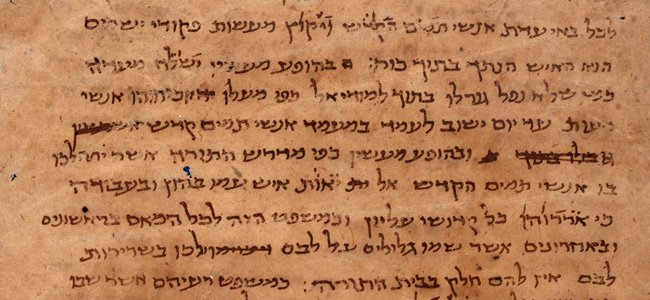 לכל באי עדת אנשי תמים הקדש ויקוץ מעשות פקודי ישרים
הוא האיש הנתך בתוך כור : בהופע מעשיו ישלח מעדה
כמי שלא נפל גורלו בתוך למודי אל כפי מעלו אנשי
מעות עד יום ישוב לעמד במעמד אנשי תמים קדש
ובהופע מעשיו כפי מדרש התורה אשר יתהלכו
בו אנשי תמים הקדש אל יאות איש עמו בהון ובעבודה
כי אררוהו כל קדושי עליון וכמשפט הזה לכל המאס בראשונים
ובאחרונים אשר שמו גלולים על לבם וילכו בשרירות
לבם אין להם חלק בבית התורה : כמשפט רעיהם אשר שבו